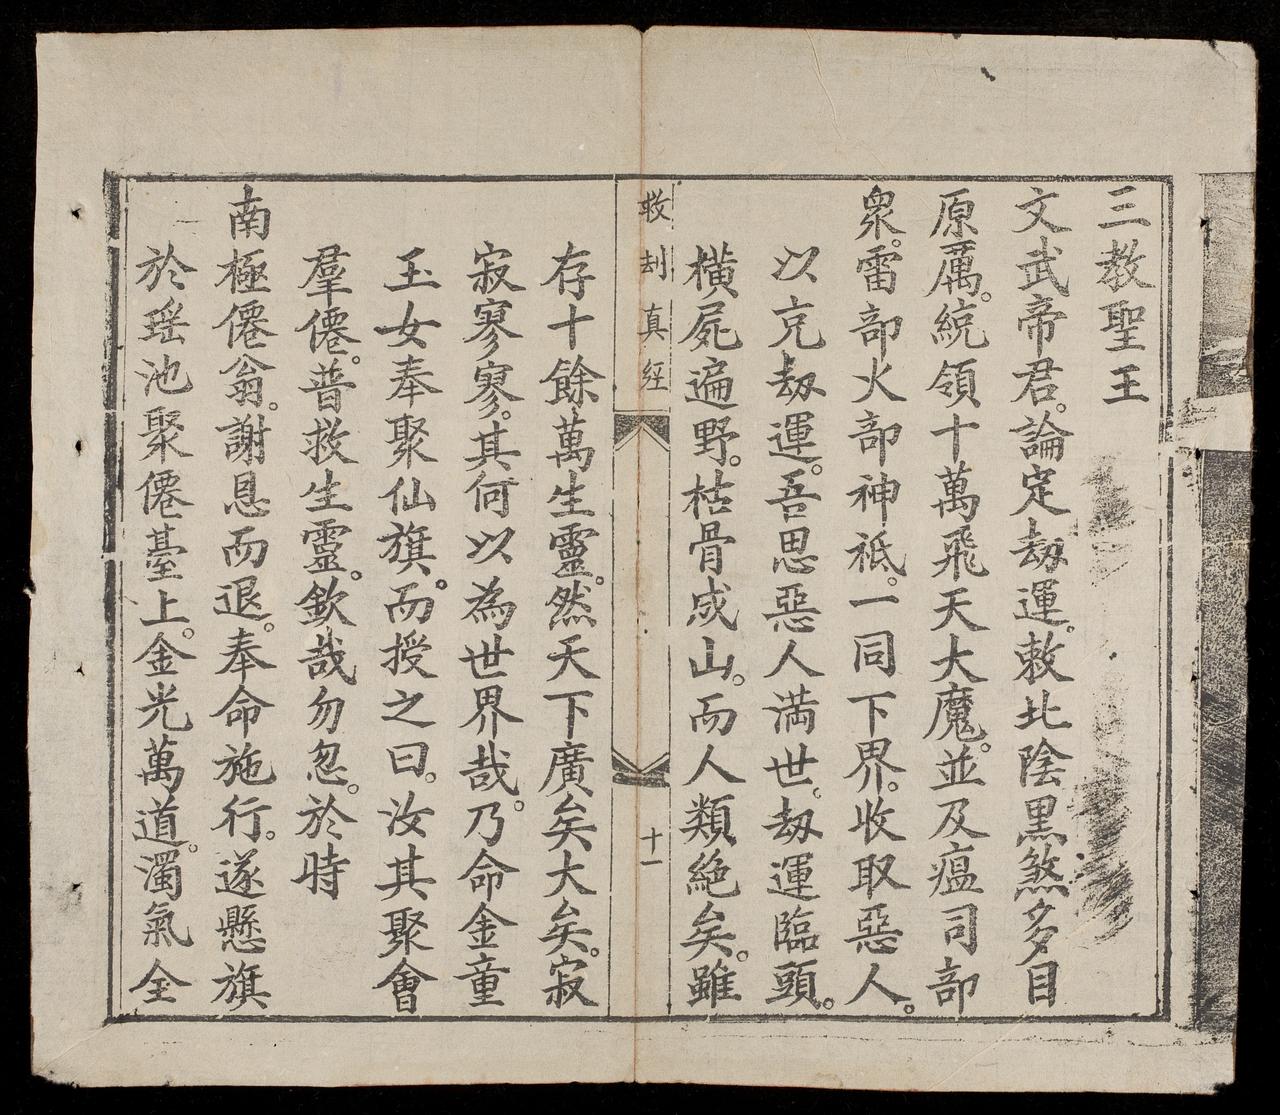 三教聖王
文武帝君。論定劫運。敕北陰黑煞多目
原厲。統領十萬飛天大魔。並及瘟司部
眾。雷部火部神祇。一同下界。收取惡人。
以充劫運。吾思惡人滿世。劫運臨頭。
橫屍遍野。枯骨成山。而人類絶矣。雖
救刦真經
十一
存十餘萬生靈。然天下廣矣大矣。寂
寂寥寥。其何以為世界哉。乃命金童
玉女奉聚仙旗。而授之曰。汝其聚會
羣僊。普救生靈。欽哉勿忽。於時
南極僊翁。謝恩而退。奉命施行。遂懸旗
於瑶池聚僊臺上。金光萬道。濁氣全